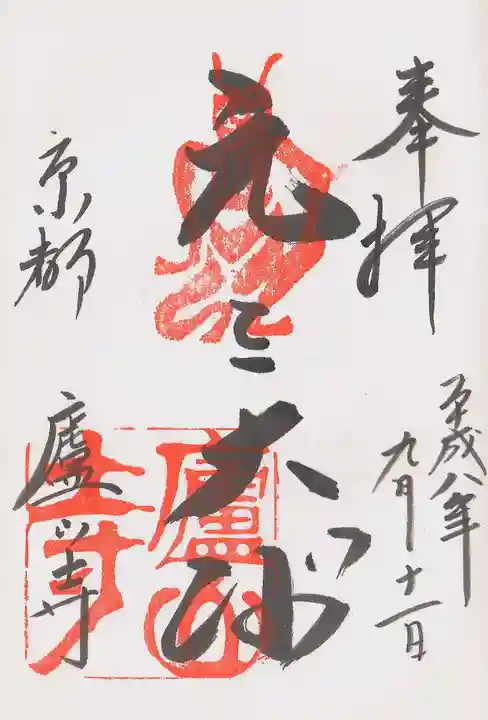 奉拝
平成八年
九月十一日
元三大师
京都
廬山寺
廬山寺